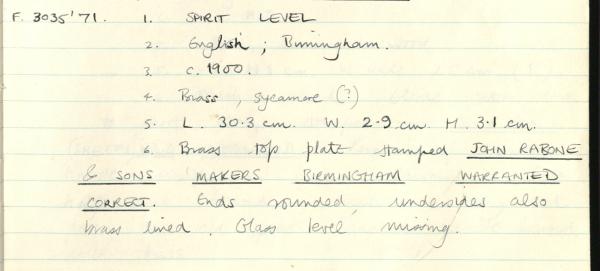 F. 3035'71. 1. SPIRIT LEVEL
2. English ; Birmingham.
3. c. 1900.
4. Brass, sycamore (?)
5. L. 30.3 cm. W. 2.9 cm. H. 3.1 cm.
6. Brass top plate stamped JOHN RABONE
& SONS MAKERS BIRMINGHAM WARRANTED
CORRECT. Ends rounded, undersides also
brass lined. Glass level missing.